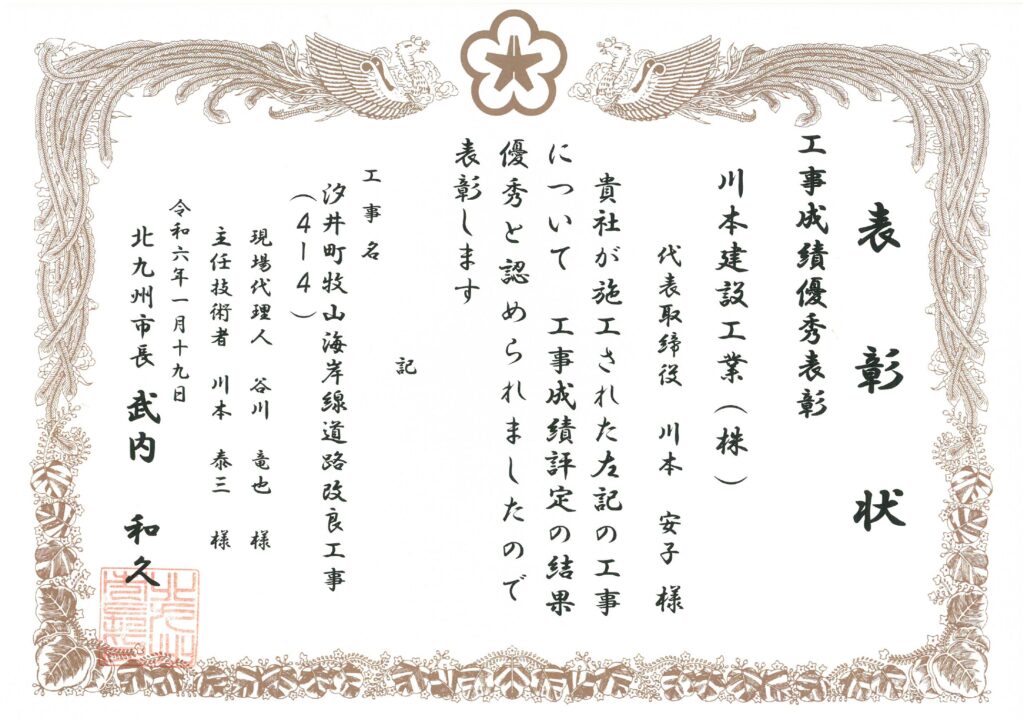 表彰状
工事成績優秀表彰
川本建設工業(株)
代表取締役 川本 安子 様
貴社が施工された左記の工事
について 工事成績評定の結果
優秀と認められましたので
表彰します
記
工事名
汐井町牧山海岸線道路改良工事
(4-4)
現場代理人 谷川 竜也 様
主任技術者 川本 泰三 様
令和六年一月十九日
北九州市長 武内 和久